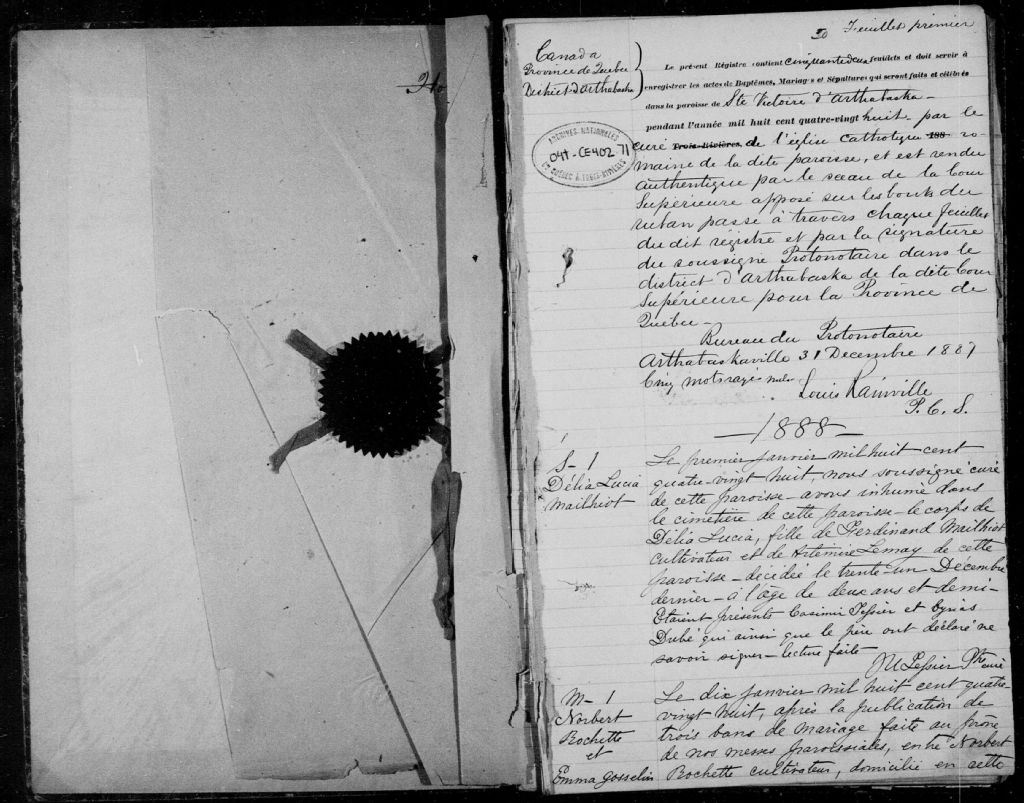 Feuillet premier
Canada
Province de Québec
District d'Arthabaska
Le présent Régistre contient cinquante deux feuillets et doit servir à
enregistrer les actes de Baptêmes, Mariages et Sépultures qui seront faits et célébrés
dans la paroisse de Ste Victoire d'Arthabaska -
pendant l'année mil huit cent quatre-vingt huit par le
curé Trois-Rivières, de l'église Catholique 188 ro-
maine de la dite paroisse, et est rendu
authentique par le sceau de la Cour
Supérieure apposé sur les bouts du
ruban passé à travers chaque feuillet
du dit régistre et par la signature
du soussigné Protonotaire dans le
district d'Arthabaska de la dite Cour
Supérieure pour la Province de
Québec -
ARCHIVES NATIONALES
04T-CE402 71
DU QUÉBEC À TROIS-RIVIÈRES
Bureau du Protonotaire
Arthabaskaville 31 Decembre 1887
Cinq mots rayés nuls
Louis Rainville
P. C. S.
— 1888 —
S - 1
Délia Lucia
Mailhiot
Le premier janvier mil huit cent
quatre-vingt huit, nous soussigné curé
de cette paroisse - avons inhumé dans
le cimetière de cette paroisse - le corps de
Délia Lucia, fille de Ferdinand Mailhiot
cultivateur et de Artémire Lemay de cette
paroisse - décédée le trente-un Décembre
dernier - à l'âge de deux ans et demi -
Etaient présents Casimir Tessier et
Dubé qui ainsi que le père ont déclaré ne
savoir signer - lecture faite
Tessier Ptre curé
M - 1
Norbert
Rochette
et
Emma Gosselin
Le dix janvier mil huit cent quatre-
vingt huit, après la publication de
trois bans de mariage faite au prône
de nos messes paroissiales, entre Norbert
Rochette cultivateur, domicilié en cette